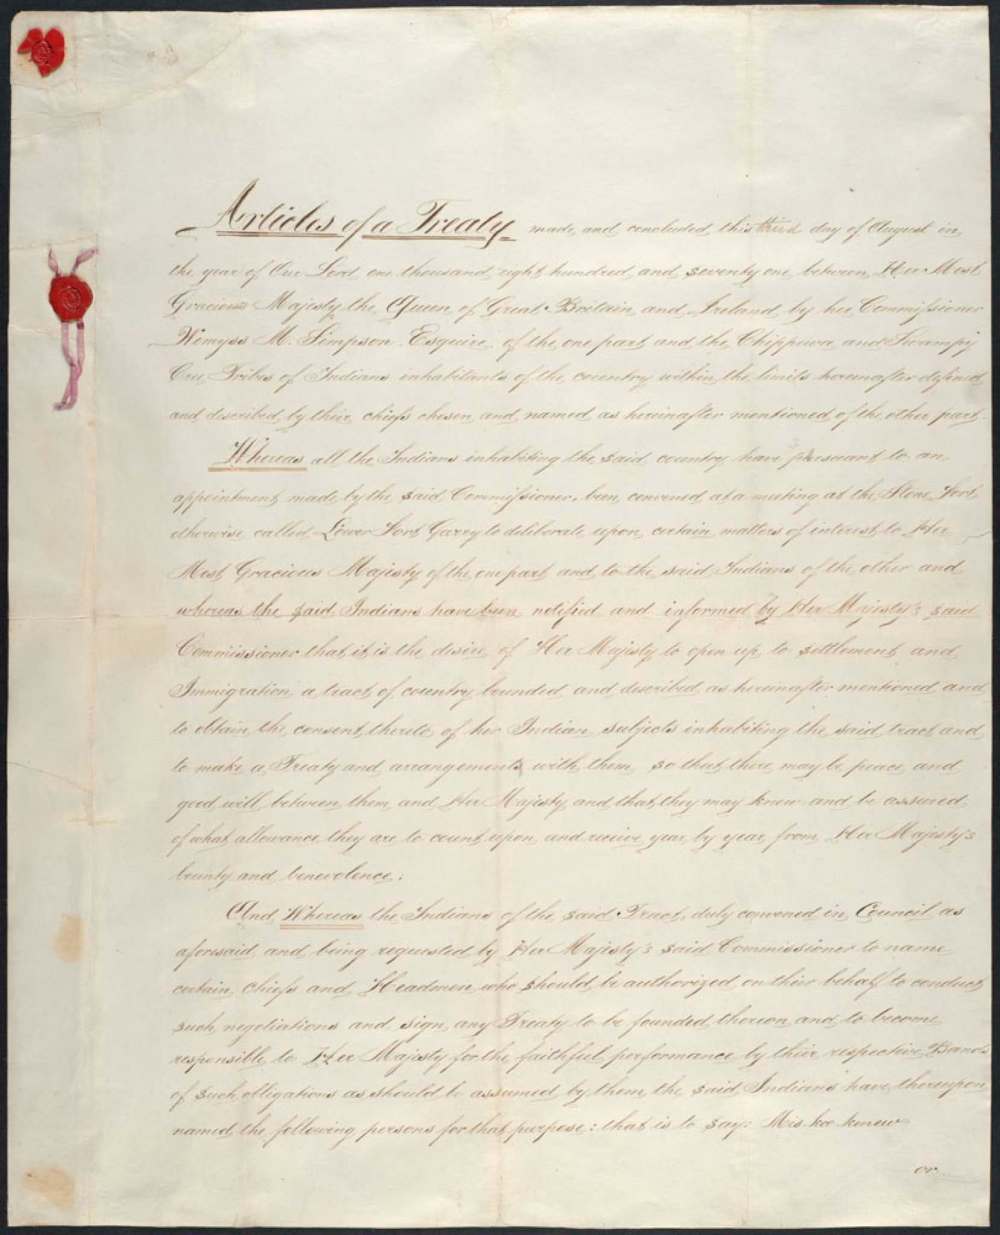 Articles of a Treaty made and concluded this third day of August in
the year of Our Lord one thousand eight hundred and seventy one between Her Most
Gracious Majesty the Queen of Great Britain and Ireland by her Commissioner
Wemyss M. Simpson Esquire of the one part and the Chippewa and Swampy
Cree Tribes of Indians inhabitants of the country within the limits hereinafter defined
and described by their chiefs chosen and named as hereinafter mentioned of the other part
Whereas all the Indians inhabiting the said country have pursuant to an
appointment made by the said Commissioner been convened at a meeting at the Stone Fort
otherwise called Lower Fort Garry to deliberate upon certain matters of interest to Her
Most Gracious Majesty of the one part and to the said Indians of the other and
whereas the said Indians have been notified and informed by Her Majesty's said
Commissioner that it is the desire of Her Majesty to open up to settlement and
Immigration a tract of country bounded and described as hereinafter mentioned and
to obtain the consent thereto of her Indian subjects inhabiting the said tract and
to make a Treaty and arrangements with them so that there may be peace and
good will between them and Her Majesty and that they may know and be assured
of what allowance they are to count upon and receive year by year from Her Majesty's
bounty and benevolence:
And Whereas the Indians of the said Tract duly convened in Council as
aforesaid and being requested by Her Majesty's said Commissioner to name
certain chiefs and Headmen who should be authorized on their behalf to conduct
such negotiations and sign any Treaty to be founded thereon and to become
responsible to Her Majesty for the faithful performance by their respective Bands
of such obligations as should be assumed by them the said Indians have thereupon
named the following persons for that purpose: that is to say: Mis-koo-kenew
or